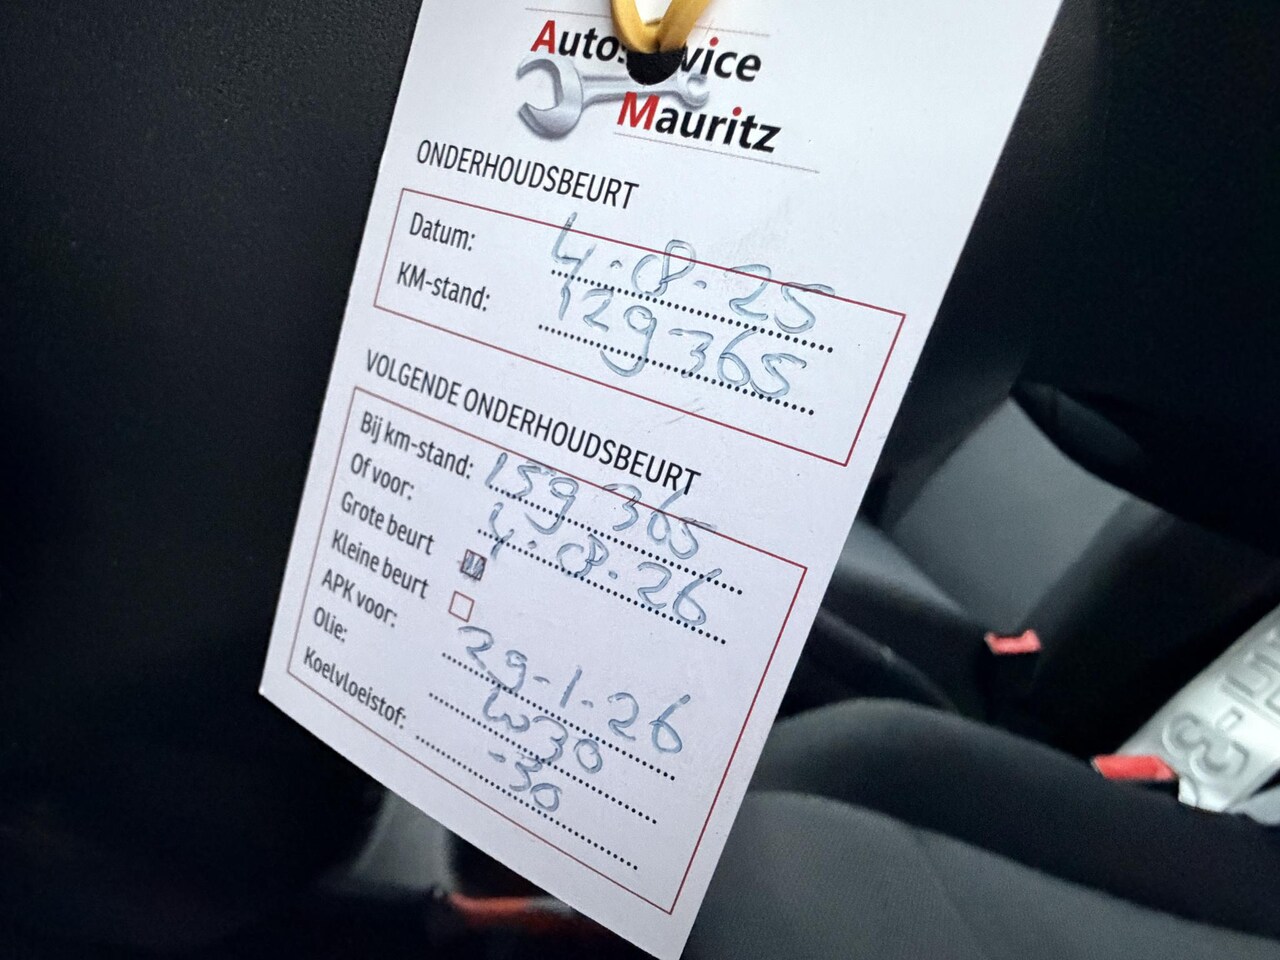 Autoservice
Mauritz
ONDERHOUDSBEURT
Datum: 4-08-25
KM-stand: 129365
VOLGENDE ONDERHOUDSBEURT
Bij km-stand: 159 365
Of voor: 4-08-26
Grote beurt
Kleine beurt
APK voor: 29-1-26
Olie: W30
Koelvloeistof: -30